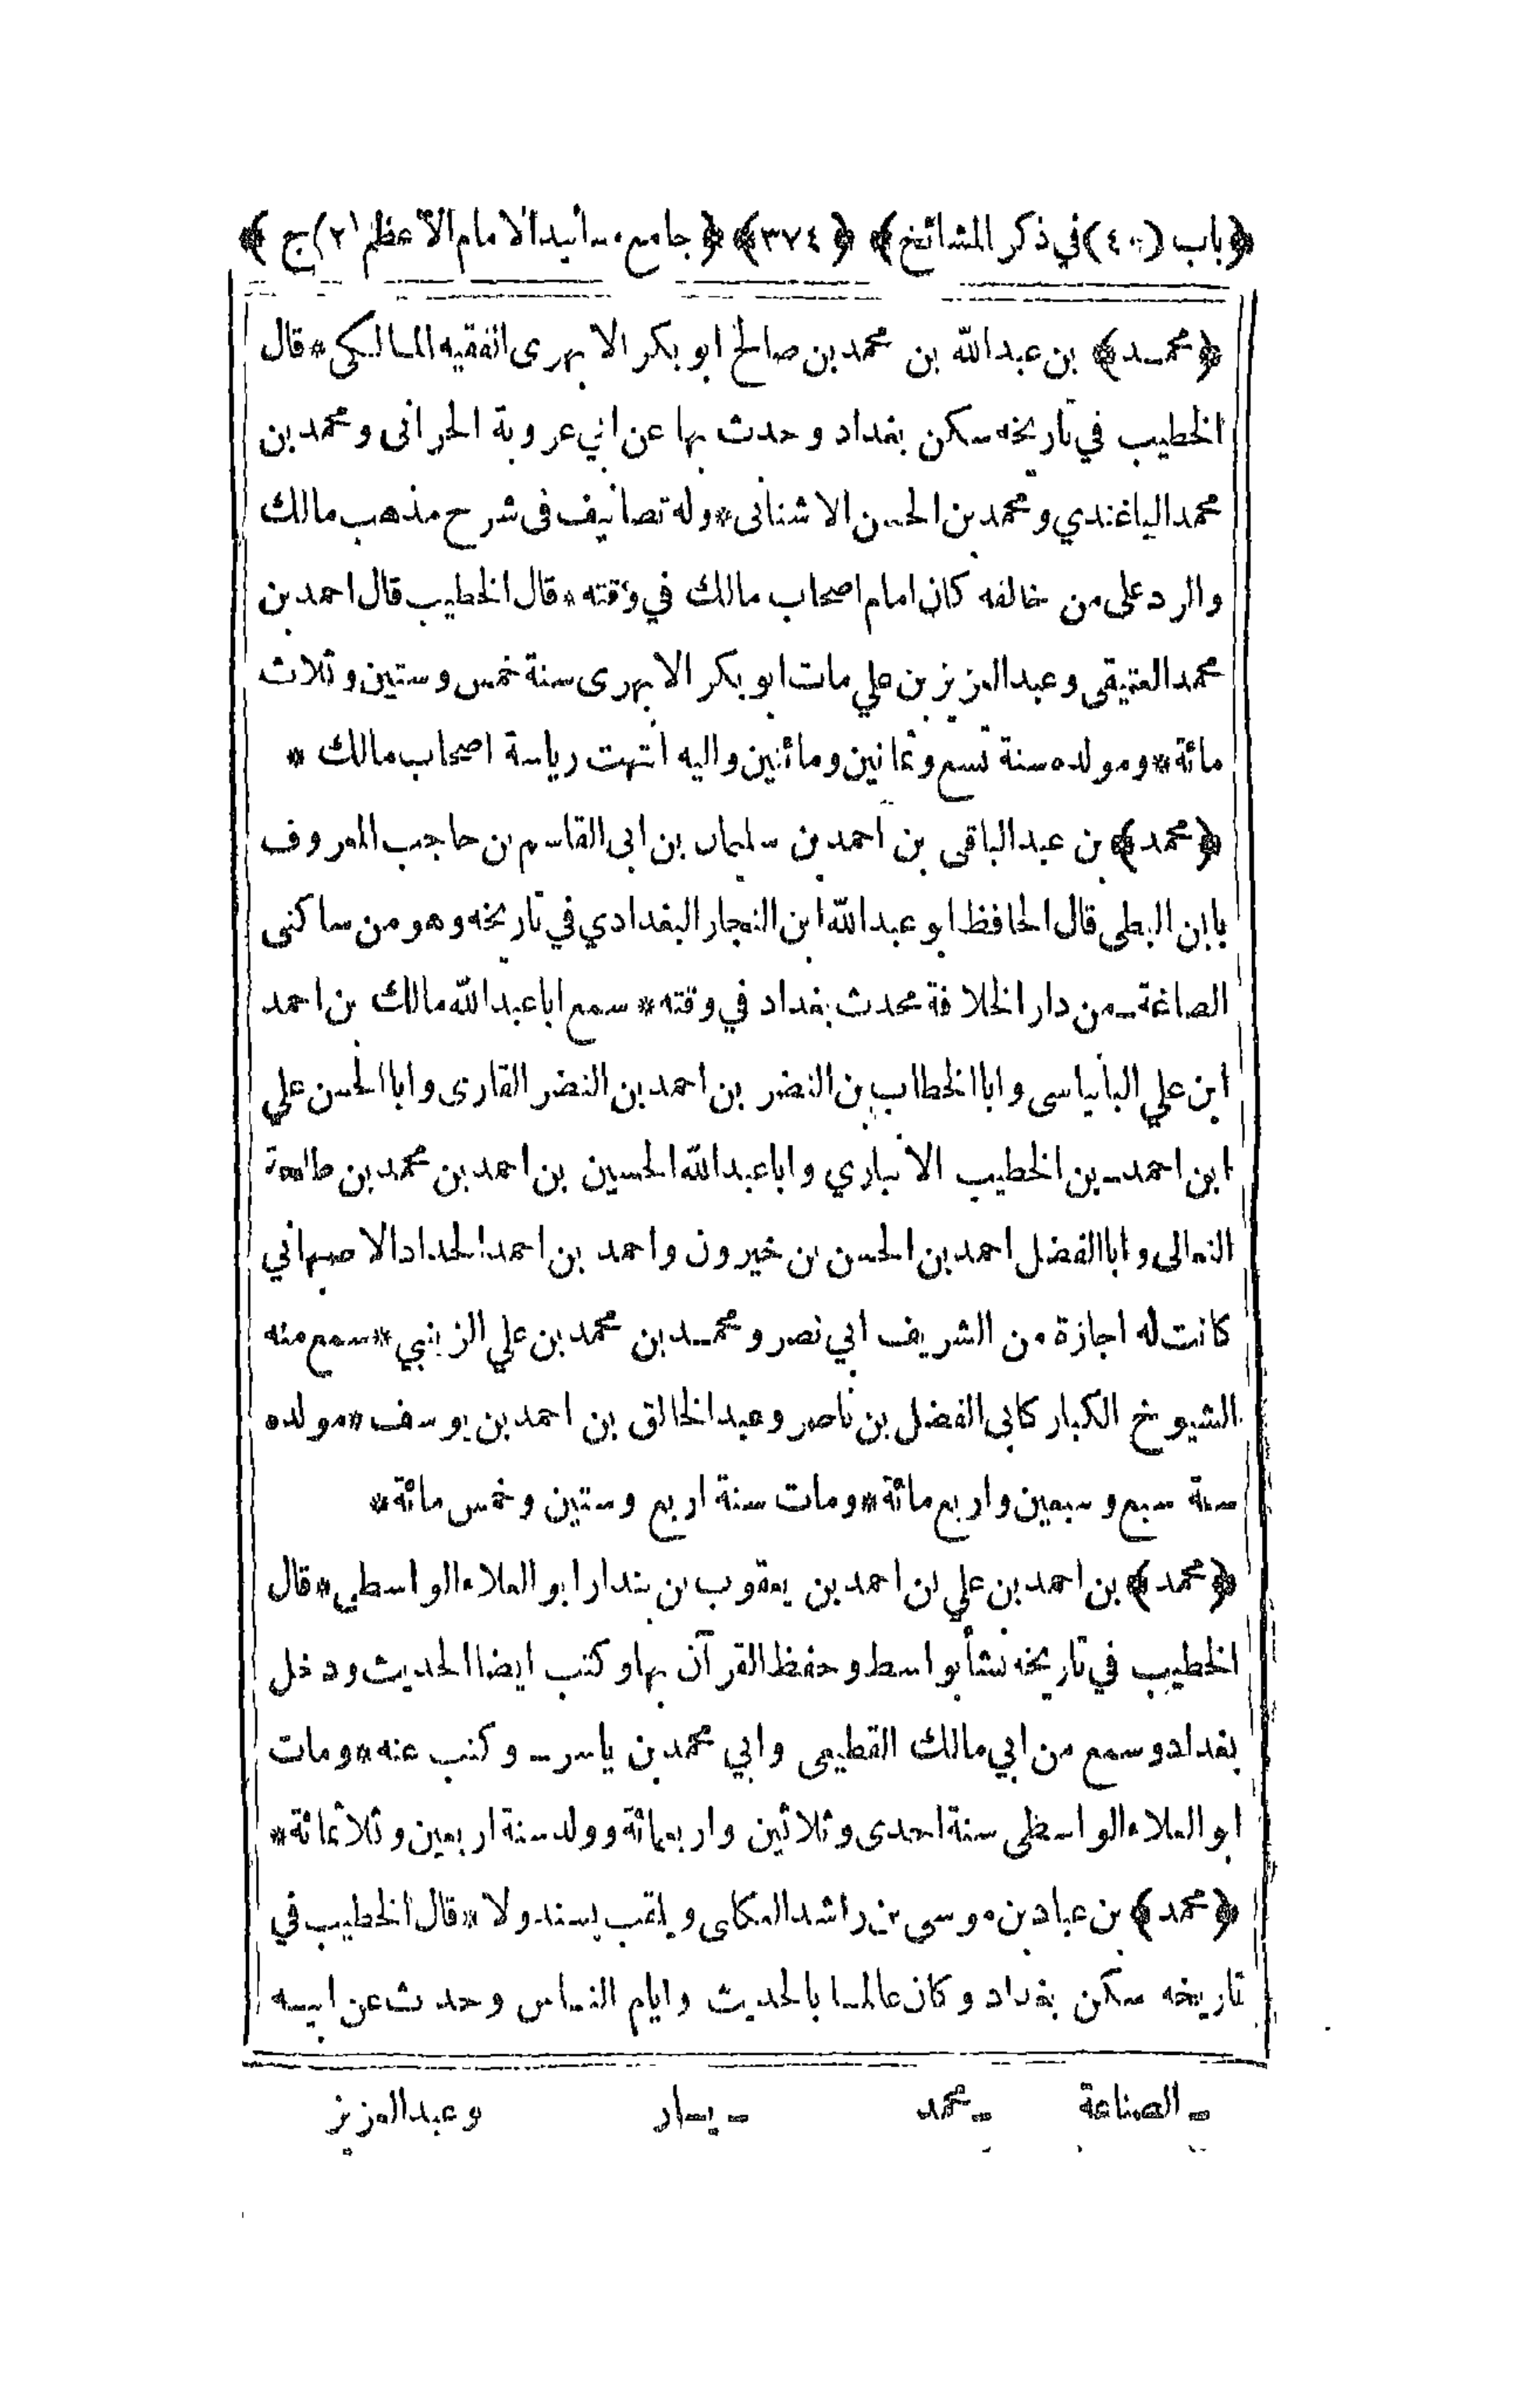 ﴿باب (٤٠) في ذكر المشائخ﴾ ﴿٣٧٤﴾ ﴿جامع مسانيد الامام الاعظم (٢) ج﴾
﴿محمد﴾ بن عبدالله بن محمد بن صالح ابو بكر الابهرى الفقيه المالكى * قال
الخطيب في تاريخه سكن بغداد وحدث بها عن ابي عروبة الحرانى ومحمد بن
محمد الباغندي ومحمد بن الحسن الاشنانى * وله تصانيف فى شرح مذهب مالك
والرد على من خالفه كان امام اصحاب مالك في وقته * قال الخطيب قال احمد بن
محمد العتيقى وعبد العزيز بن علي مات ابو بكر الابهرى سنة خمس وستين وثلاث
مائة * ومولده سنة تسع وثمانين ومائتين واليه انتهت رياسة اصحاب مالك *
﴿محمد﴾ بن عبدالباقى بن احمد بن سليمان بن ابى القاسم بن حاجب المعروف
بابن البطى قال الحافظ ابو عبدالله ابن النجار البغدادي في تاريخه وهو من ساكنى
الصاغة ـ من دار الخلافة محدث بغداد في وقته * سمع ابا عبدالله مالك بن احمد
ابن علي البانياسى وابا الخطاب بن النضر بن احمد بن النضر القارى وابا الحسن علي
ابن احمد ـ بن الخطيب الانبارى وابا عبدالله الحسين بن احمد بن محمد بن طلحة
النعالى وابا الفضل احمد بن الحسن بن خيرون واحمد بن احمد الحداد الاصبهاني
كانت له اجازة من الشريف ابي نصر ومحمد بن محمد بن علي الزينبي * سمع منه
الشيوخ الكبار كابى الفضل بن ناصر وعبد الخالق بن احمد بن يوسف * مولده
سنة سبع وسبعين واربع مائة * ومات سنة اربع وستين وخمس مائة *
﴿محمد﴾ بن احمد بن علي بن احمد بن يعقوب بن بندار ابو العلاء الواسطي * قال
الخطيب في تاريخه نشأ بواسط وحفظ القرآن بها وكتب ايضا الحديث ودخل
بغداد وسمع من ابي مالك القطيعى وابي محمد بن ياسر ـ وكتب عنه * ومات
ابو العلاء الواسطى سنة احدى وثلاثين واربعمائة وولد سنة اربعين وثلاثمائة *
﴿محمد﴾ بن عباد بن موسى بن راشد العكلى ويلقب بسندولا * قال الخطيب في
تاريخه سكن بغداد وكان عالما بالحديث وايام الناس وحدث عن ابيه
ـ الصناعة ـ محمد ـ يسار وعبد العزيز